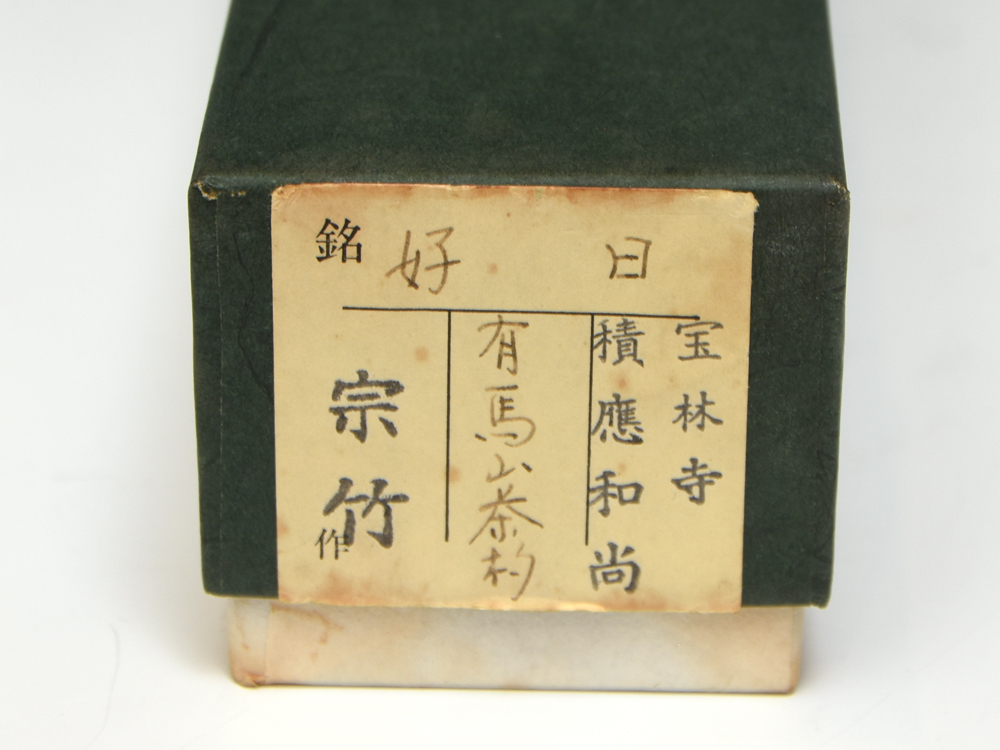 銘 好日
宝林寺
積應和尚
有馬山茶杓
宗竹
作